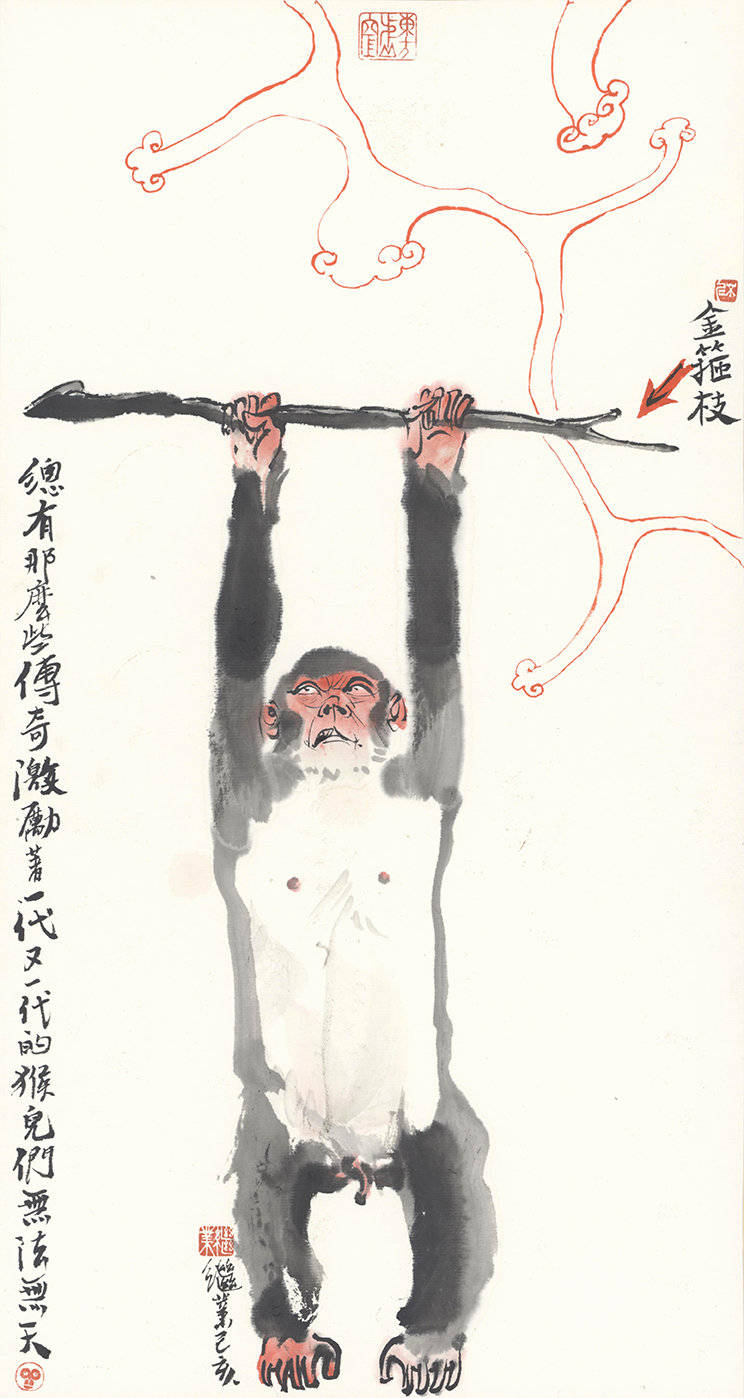 金箍枝
總有那麼些傳奇激勵著一代又一代的猴兒們無法無天
繼業己亥
繼業